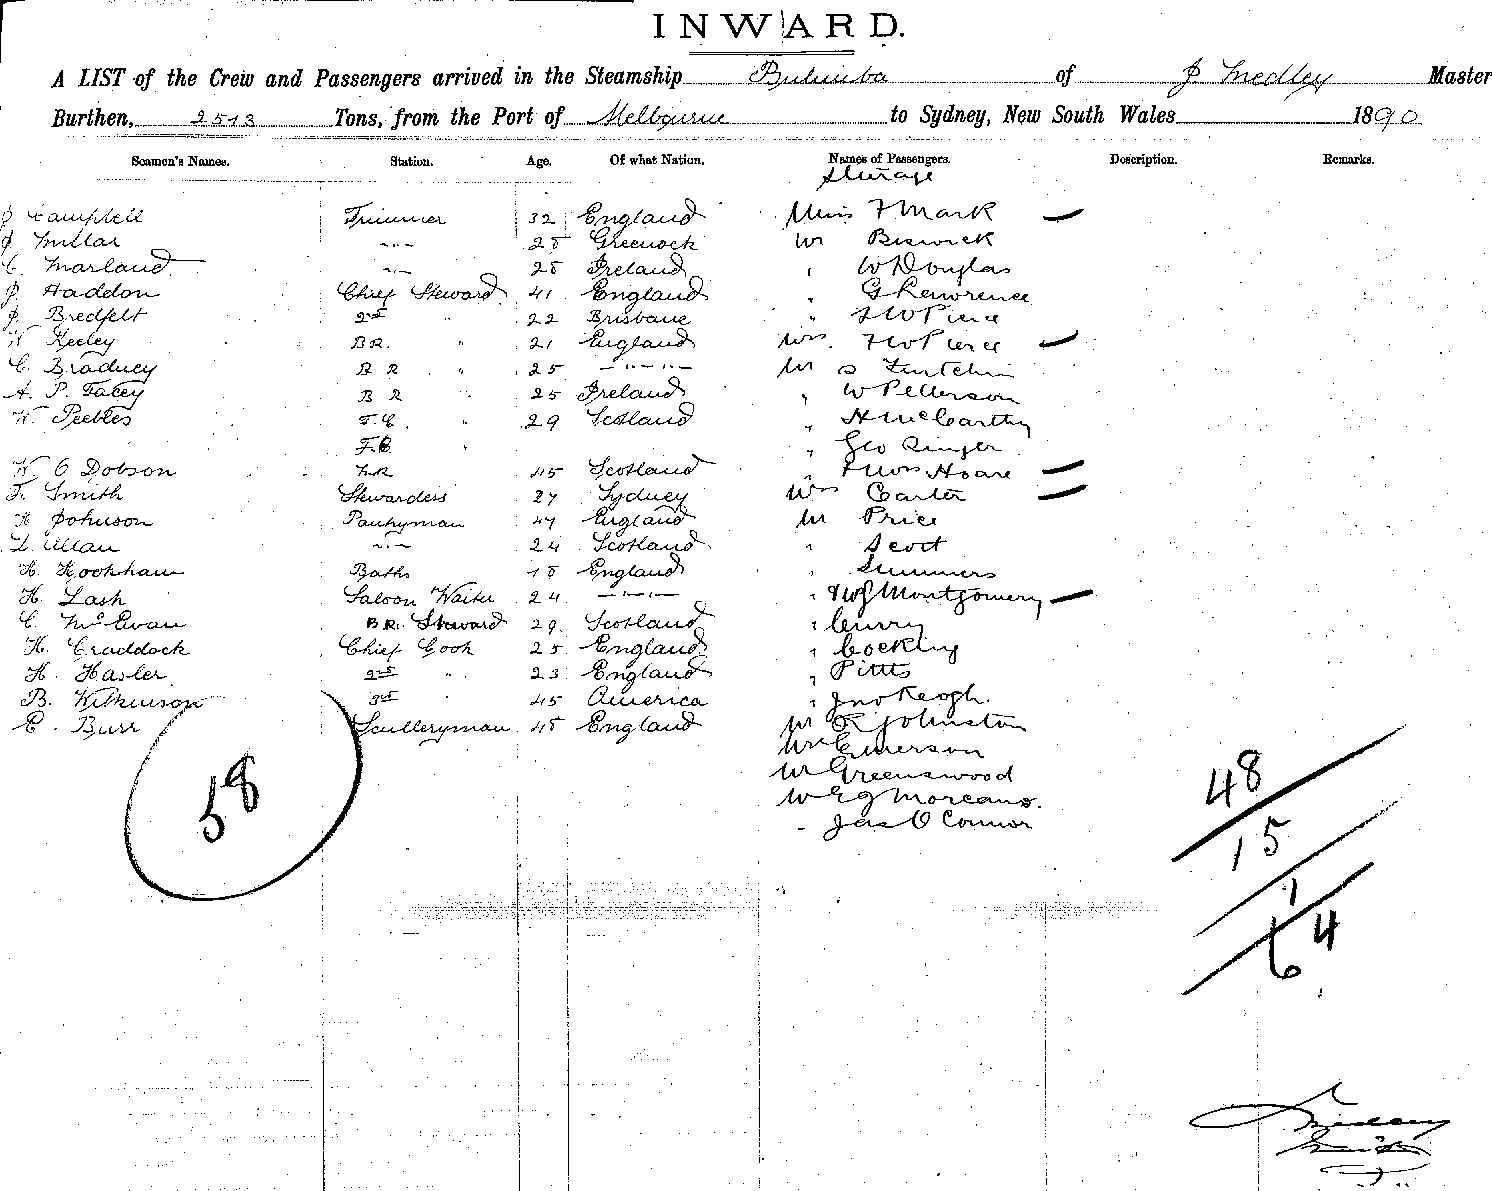 INWARD.
A LIST of the Crew and Passengers arrived in the Steamship Bulimba of J Medley Master
Burthen, 2513 Tons, from the Port of Melbourne to Sydney, New South Wales 1890
Seamen's Names. Station. Age. Of what Nation. Names of Passengers. Description. Remarks.
Sturage
J Campbell Trimmer 32 England Miss F Mark —
J Millar -"- 28 Greenock Mr Beswick
C. Marland -"- 28 Ireland " W Douglas
J. Haddon Chief Steward 41 England " G Lawrence
J. Bredfelt 2nd " 22 Brisbane " F W Pierce
W Keeley B.R. " 21 England Mrs. F W Pierce —
C. Braduey B R " 25 -"- Mr S
A. P. Facey B R " 25 Ireland " W Petterson
W. Peebles F.C. " 29 Scotland " H McCarthy
F.C. " Geo Singer
W C Dobson 45 Scotland " & Mrs Hoare =
F. Smith Stewardess 27 Sydney Mrs Carter =
H Johnson Pantryman 47 England Mr Price
D. Allan -"- 24 Scotland " Scott
H. Hookham Baths 18 England " Summers
H. Lash Saloon Waiter 24 -"- " & W J Montgomery —
C. McEwan B.R. Steward 29 Scotland " Curry
H. Craddock Chief Cook 25 England " Cocking
H. Hasler 2nd " 23 England " Pitts
B. Wilkinson 3rd 45 America " Jno Keogh.
E. Burr Sculleryman 45 England Mr R Johnston
Mr Emerson
Mr Greenswood
Mr E G
" Jas O Connor
58
48
15
1
64
J Medley
Master